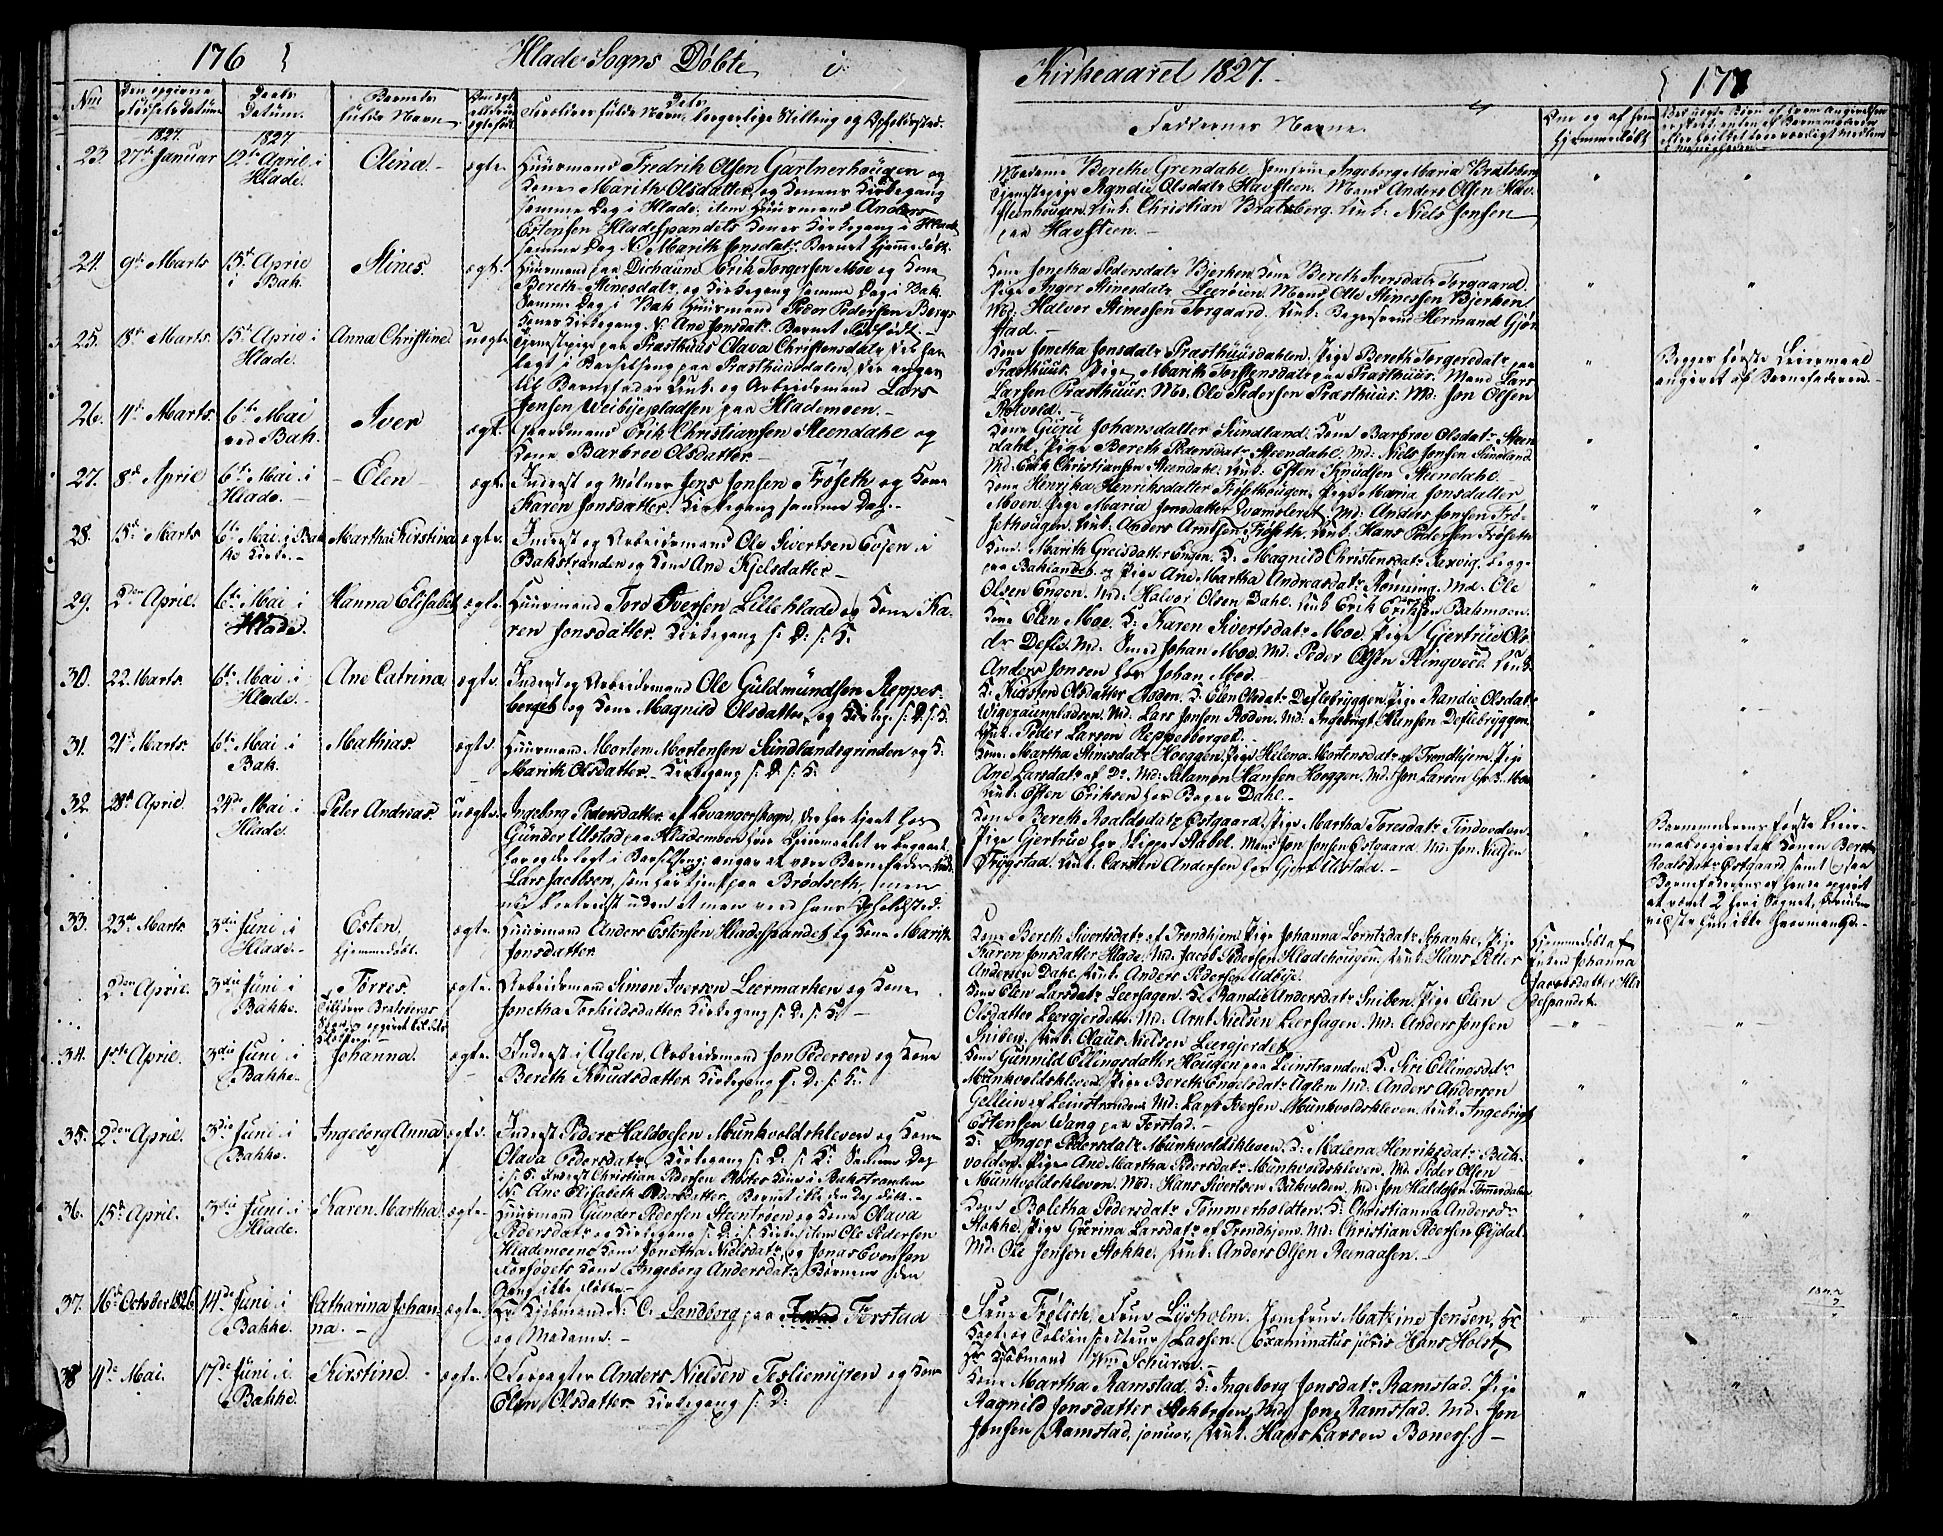 176
Hlade Sogns Døbte i
Kirkeaaret 1827.
177
No
Den opgivne Fødsels Datum
Daabs Datum.
Barnets fulde Navn
Forældres fulde Navn, borgerlige Stilling og Opholdssted.
Faddernes Navne
1827.
1827
23
27de Januar
12te April i
Hlade.
Elina.
ægte.
Huusmand Fredrik Olsen Gartnerhougen og
Kone Marith Olsdatter, og Konens Kirkegang
samme Dag i Hlade. item Huusmand Anders
Estensen Hladespandets Kones Kirkegang i Hlade
samme Dag N. Marith Jonsdatr. Barnet hjemmedøbt.
Madame Berethe Grendahl, Jomfrue Ingeborg Maria Bratsberg
Tjenestepige Randie Olsdatr Havstein. Mand Anders Olsen Hav-
steinhougen. Unk. Christian Bratsberg. Unk. Niels Jonsen
paa Havstein.
24.
9de Marts
15de April
i Bak.
Stines.
ægte.
Huusmand paa Dichaune Erik Torgersen Moe og Kone
Bereth Stinesdatr. og Kirkegang samme Dag i Bak.
Samme Dag i Bak Huusmand Peder Pedersen Bergs
Kones Kirkegang N. Ane Jonsdatr. Barnet
Kone Jonetha Pedersdatr Bjerken, Kone Bereth Iversdatr Torgaard.
Pige Inger Stinesdatr Leerøien. Mand Ole Stinessen Bjerken
Md. Halvor Stinessen Torgaard. Unk. Bagersvend Hermand Gjør-
stad.
25.
18de Marts.
15de April i
Hlade.
Anna Christine
uægte
Tjenestepige paa Præsthuus Olava Christensdatr. der har
lagt i Barselseng paa Præsthuusdalen, der angav
til Barnefader Unk. og Arbeidsmand Lars
Jensen Weibyepladsen paa Hlademoen.
Kone Jonetha Jonsdatr Præsthuusdahlen. Pige Bereth Torgersdatr paa
Præsthuus. Pige Marith Torstensdatr paa Præsthuus. Mand Lars
Larsen Præsthuus. Md. Ole Pedersen Præsthuus. Md: Jon Olsen
Rotvold.
Begges første Leiermaal
angivet af Barnefaderen.
26.
4de Marts.
6te Mai
ved Bak.
Iver
ægte.
Gaardmand Erik Christiansen Steendahl og
Kone Barbroe Olsdatter.
Kone Guru Johansdatter Sundland. Kone Barbroe Olsdatr Steen-
dahl, Pige Bereth Pedersdatr Steendahl. Md: Niels Jonsen Sundland
Md. Erik Christiansen Steendahl. Unk. Esten Knudsen Steendahl.
27.
8de April
6te Mai i
Hlade.
Elen
ægte.
Inderst og Møller Jens Jonsen Frøseth og Kone
Karen Jonsdatter. Kirkegang samme Dag.
Kone Henrika Henriksdatter Frøsethougen. Pige Maria Jonsdatter
Moen. Pige Maria Jonsdatter Svamsleret. Md: Anders Jonsen Frø-
sethougen. Unk. Anders Arntsen Frøseth. Unk. Hans Pedersen Frøseth
28.
15de Marts
6te Mai i Bak-
ke Kirke.
Martha Kirstina
ægte.
Inderst og Arbeidsmand Ole Sivertsen Evjen i
Bakstranden og Kone Ane Kjelsdatter
Kone Marith Greisdatter Engen. K. Magnild Christensdatr Saxvig, begge
paa Baklandet, og Pige Ane Martha Andreasdatr Rønning. Md. Ole
Olsen Engen. Md. Halvor Olsen Dahl. Unk Erik Eriksen Bakmoen.
29.
2den April.
6te Mai i
Hlade.
Hanna Elisabet
ægte.
Huusmand Tore Iversen Lillehlade og Kone Ka-
ren Jonsdatter. Kirkegang s. D. s. K.
Kone Elen Moe. K: Karen Sivertsdatr Moe. Pige Gjertrud Ols-
dr Defle. Md. Smed Johan Moe. Md: Peder Olsen Ringved. Unk.
Anders Jonsen hos Johan Moe.
30.
22. Marts.
6te Mai i
Hlade.
Ane Catrina
ægte.
Inderst og Arbeidsmand Ole Guldmundsen Reppes-
berget og Kone Magnild Olsdatter, og Kirkeg. s. D. s. K.
K. Kirsten Olsdatter Roden. K: Elen Olsdatr Deflebryggen. Pige Randie Olsdatr
Wigezaunpladsen. Md. Lars Jonsen Roden. Md: Ingebrigt Hansen Deflebryggen.
Unk. Peder Larsen Reppesberget.
31.
21de Marts.
6te Mai i
Bak.
Mathias.
ægte.
Huusmand Morten Mortensen Sundlandsgrinden og K.
Marith Olsdatter. Kirkegang s. D. s. K.
Kone Martha Stinesdatr Hoeggen. Pige Helena Mortensdatr af Trondhjem. Pige
Ane Larsdatr af Do. Md: Salamon Hansen Hoeggen. Md: Jon Larsen
Unk. Esten Eriksen hos Bager Dahl.
32.
28de April.
24de Mai i
Hlade.
Peter Andreas.
uægte.
Ingeborg Pedersdatter af Levangerskogn, der har tjent hos
Gunder Ulstad paa Hlademoen hvor Leiermaalet er begaaet
har og der lagt i Barselseng; angav at være Barnefader Unk.
Lars Jacobsen, som har tjent paa Brødseth, men
nu bortreist uden at man veed hans Opholdsted.
Kone Bereth Roaldsdatr Østgaard. Pige Martha Toresdatr Tindvedvei
Pige Gjertrue hos Lippe Stabel. Mand Jon Jonsen Østgaard. Md. Jon Nielsen
Trøgstad. Unk. Carsten Andersen hos Gjert Ulstad.
Barnemoderens første Leier-
maal angivet af Konen Bereth
Roalsdatr Østgaard samt
Barnefaderens af hende opgivet
at være 2
vidste hun ikke hvormange.
33.
23de Marts
3die Juni i
Hlade.
Esten.
hjemmedøbt.
ægte.
Huusmand Anders Estensen Hladespandet og Kone Marith
Jonsdatter.
Kone Bereth Sivertsdatr af Trondhjem. Pige Johanna Lorntzdatr Schanke. Pige
Karen Jonsdatter Hlade. Md. Jacob Pedersen Hladehougen. Unk. Hans Petter
Andersen Dahl. Unk. Anders Pedersen Udbye.
Hjemmedøbt af
Enken Johanna
Jacobsdatter Hla-
despandet.
2den April.
3die Juni i
Bakke.
Torres.
ægte.
Arbeidsmand Simon Iversen Leermarken og Kone
Jonetha Torkildsdatter. Kirkegang s. D. s. K.
Kone Elen Larsdatr Leersagen. K. Randie Andersdatr Sniben. Pige Elen
Olsdatter Leergjerdet. Md. Arnt Nielsen Leersagen. Md. Anders Jonsen
Sniben. Unk. Claus Nielsen Leergjerdet.
34.
1ste April.
3die Juni i
Bakke.
Johanna.
ægte.
Inderst i Uglen, Arbeidsmand Jon Pedersen og Kone
Bereth Knudsdatter. Kirkegang s. D. s. K.
Kone Gunnild Ellingsdatter Hougen paa Leinstranden. K. Siri Ellingsdatr
Munkvoldskleven. Pige Bereth Engelsdatr Uglen. Md. Anders Andersen
Gellein af Leinstranden. Md: Lars Iversen Munkvoldskleven. Unk. Ingebrigt
Estensen Wang paa Ferstad.
35.
2den April.
3die Juni i
Bakke.
Ingeborg Anna
ægte.
Inderst Peder Haldosen Munkvoldskleven og Kone
Olava Pedersdatr Kirkegang s. D. s. K. Samme Dag
i s. K. Inderst Christian Pedersen Røstes Kone i Bakstranden
N: Ane Elisabeth Pedersdatter. Barnet ikke den Dag døbt.
K. Inger Pedersdatr Munkvoldskleven. K. Malena Henriksdatr Buk-
volden. Pige Ane Martha Pedersdatr Munkvoldskleven. Md. Peder Olsen
Munkvoldskleven. Md: Hans Sivertsen Bukvolden. Md: Jon Haldosen Tommerdalen
36.
15de April.
3die Juni i
Hlade.
Karen Martha.
ægte.
Huusmand Gunder Pedersen Steentrøen og Kone Olava
Pedersdatr og Kirkegang s. D. s. Kirke, item Ole Pedersen
Hlademoens Kone Jonetha Nielsdatr, og Jonas Evensen
Forsøgets Kone Ingeborg Andersdatr. Børnene den
Gang ikke døbte.
Kone Boletha Pedersdatr Tømmerholdten. K: Christianna Andersdr
Stokke. Pige Gurina Larsdatr af Trondhjem. Md: Christian Pedersen Øysdal.
Md. Ole Jonsen Stokke. Unk. Anders Olsen Reenaasen.
37.
16de October 1826.
14de Juni i
Bakke.
Catharina Johan-
na.
ægte.
Hr Kiøbmand N: C. Lundborg paa Ferstad
og Madame.
Frue Frølich, Frue Lysholm. Jomfrue Matzine Jensen. Hr.
Lassen. Examinatus juris Hans Holst
Hr Kiøbmand Wm Schürer.
38
4de Mai.
17de Juni i
Bakke.
Kirstine.
ægte.
Forpagter Anders Nielsen Tesliemyren og Kone
Elen Olsdatter. Kirkegang s. D.
Kone Martha Ramstad. K. Ingeborg Jonsdatr Ramstad. Pige
Ragnild Jonsdatter Stokbroen. Md. Jon Ramstad. Md. Jon
Jonsen Ramstad, junior, Unk. Hans Larsen Boners.